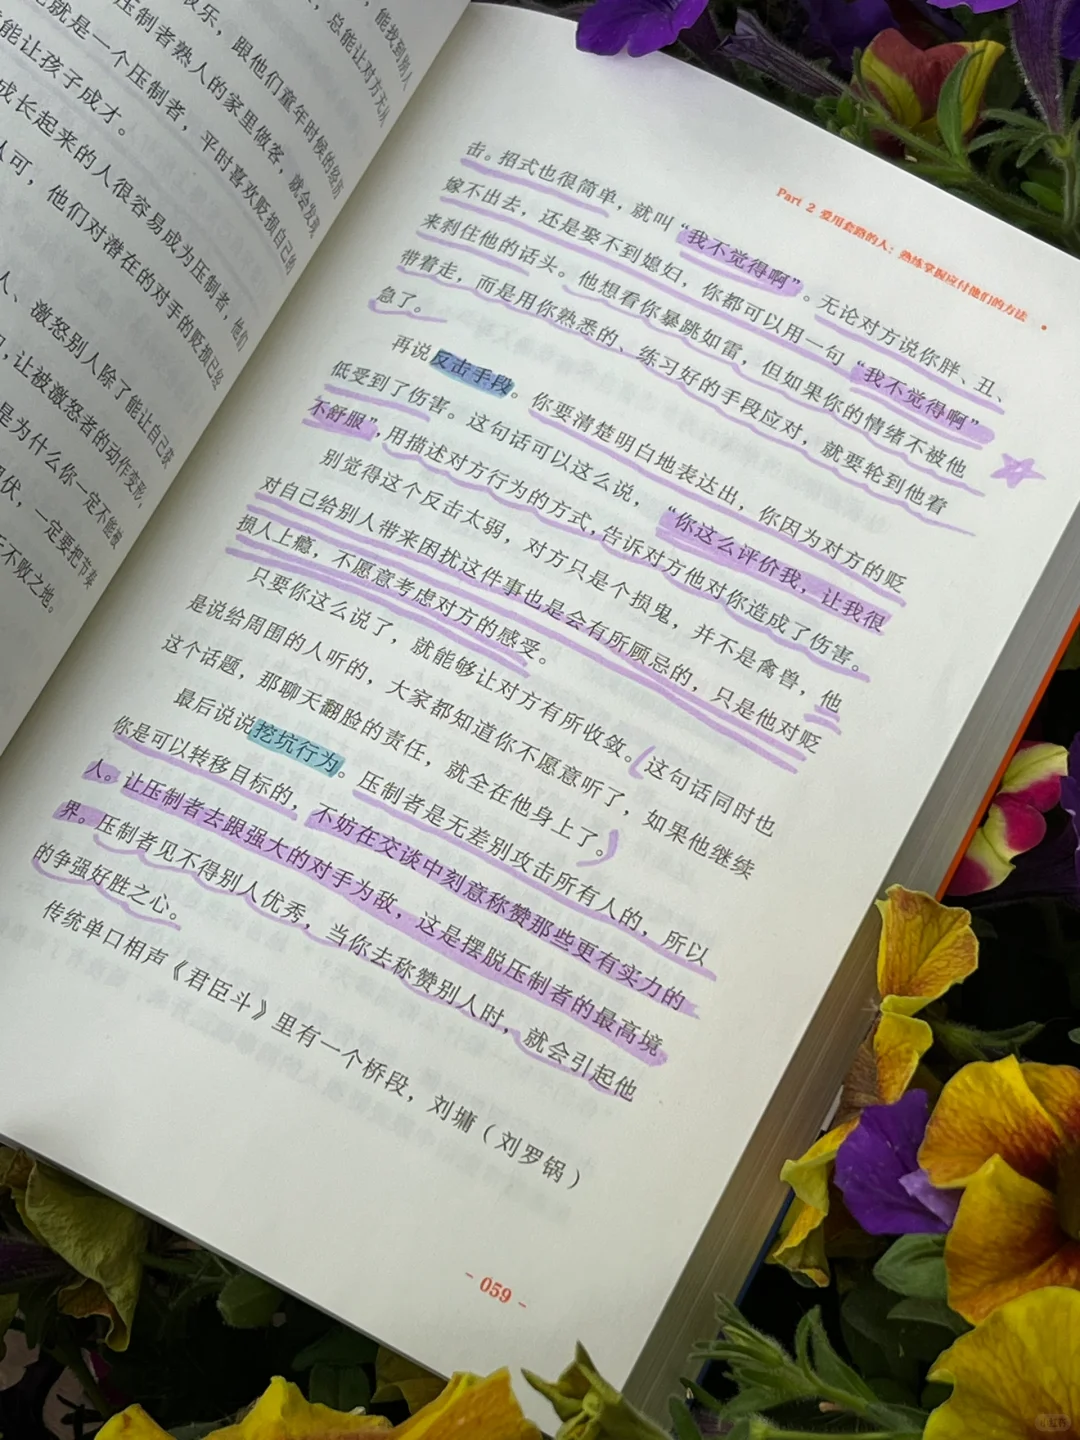 ，能找到别人
，总能让对方无从
乐，跟他们童年时候的经历
压制者熟人的家里做客，就会发现
就是一个压制者，平时喜欢贬损自己的
能让孩子成才。
成长起来的人很容易成为压制者，他们
认可，他们对潜在的对手的贬损已经
人、激怒别人除了能让自己获
，让被激怒者的动作变形，
是为什么你一定不能被
伏，一定要把节奏
不败之地。
Part 2 爱用套路的人：熟练掌握应付他们的方法
击。招式也很简单，就叫“我不觉得啊”。无论对方说你胖、丑、
嫁不出去，还是娶不到媳妇，你都可以用一句“我不觉得啊”
来刹住他的话头。他想看你暴跳如雷，但如果你的情绪不被他
带着走，而是用你熟悉的、练习好的手段应对，就要轮到他着
急了。
再说反击手段。你要清楚明白地表达出，你因为对方的贬
低受到了伤害。这句话可以这么说，“你这么评价我，让我很
不舒服”，用描述对方行为的方式，告诉对方他对你造成了伤害。
别觉得这个反击太弱，对方只是个损鬼，并不是禽兽，他
对自己给别人带来困扰这件事也是会有所顾忌的，只是他对贬
损人上瘾，不愿意考虑对方的感受。
只要你这么说了，就能够让对方有所收敛。这句话同时也
是说给周围的人听的，大家都知道你不愿意听了，如果他继续
这个话题，那聊天翻脸的责任，就全在他身上了。
最后说说挖坑行为。压制者是无差别攻击所有人的，所以
你是可以转移目标的，不妨在交谈中刻意称赞那些更有实力的
人。让压制者去跟强大的对手为敌，这是摆脱压制者的最高境
界。压制者见不得别人优秀，当你去称赞别人时，就会引起他
的争强好胜之心。
传统单口相声《君臣斗》里有一个桥段，刘墉（刘罗锅）
- 059 -